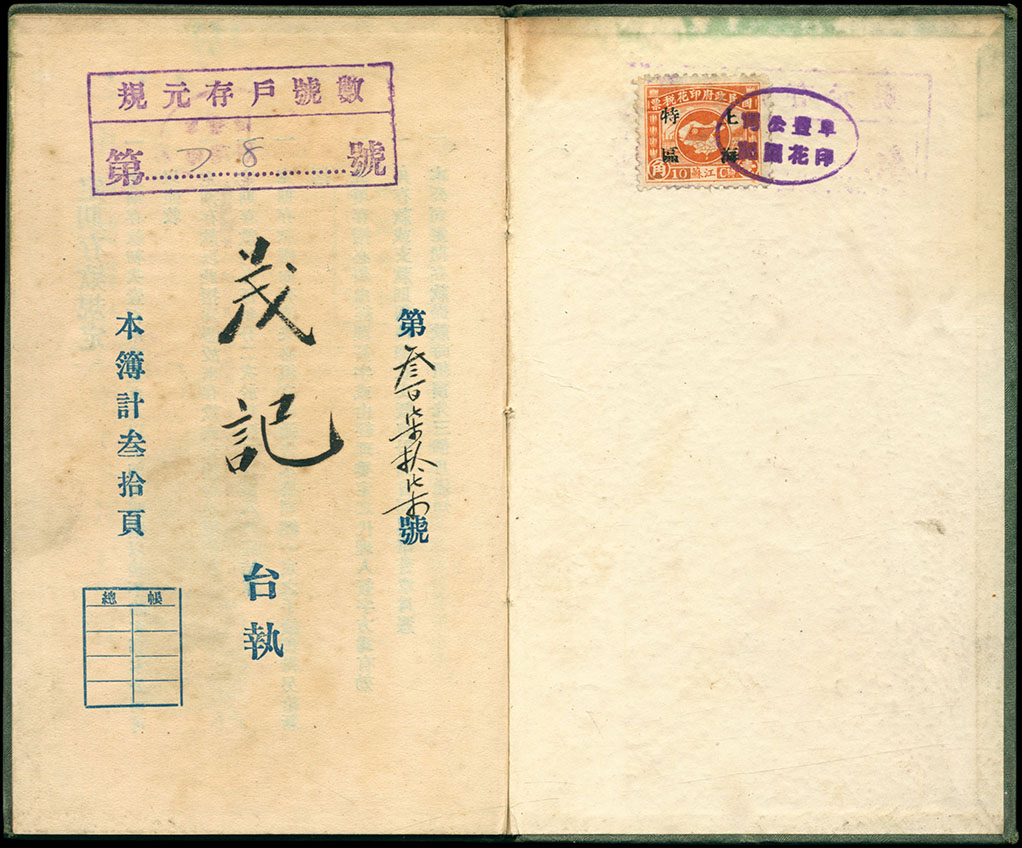 國民政府印花稅票
上海
特區
角
10
蘇江
阜豐公司
印花圖記
數號戶存元規
第 28 號
第叁柒拾柒號
茂記
台執
本簿計叁拾頁
帳總